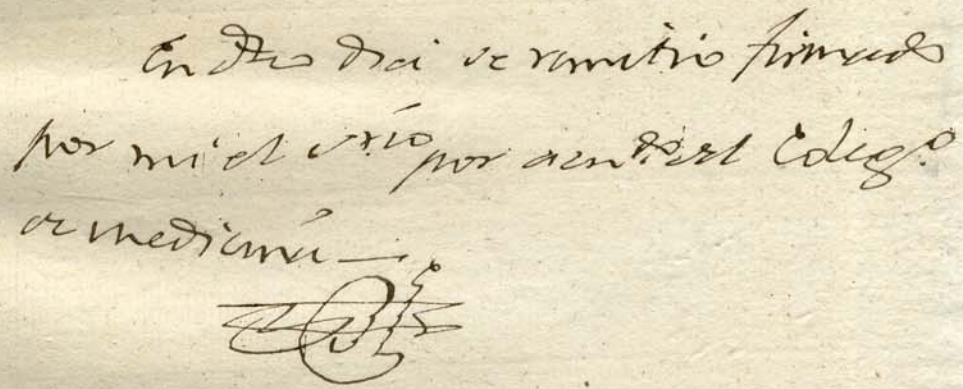 En dho dia se remitio firmado
por mi el srio por acuerdo del Coleg.º
de medicina